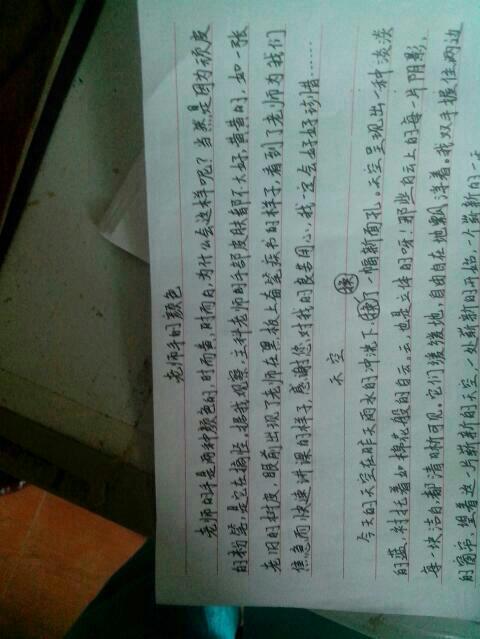 老师手的颜色
老师的手是两种颜色的,时而黄,时而白,为什么会这样呢?当然是因为顽皮
的粉笔,是它在搞怪。据我观察,主科老师的手部皮肤都不大好,黄黄的,如一张
老旧的树皮,眼前出现了老师在黑板上奋笔疾书的样子,看到了老师为我们
焦急而快速讲课的样子,感谢您对我的良苦用心,我一定会好好珍惜……
天空
今天的天空在昨天雨水的冲洗下,换了一幅新面孔。天空呈现出一种淡淡
的蓝,衬托着如棉花般的白云。云,也是立体的呀!那些白云上的每一片阴影,
每一块洁白,都清晰可见,它们缓缓地,自由自在地飘浮着。我双手握住两边
的窗帘,望着这一片崭新的天空,一处崭新的开始,一个崭新的